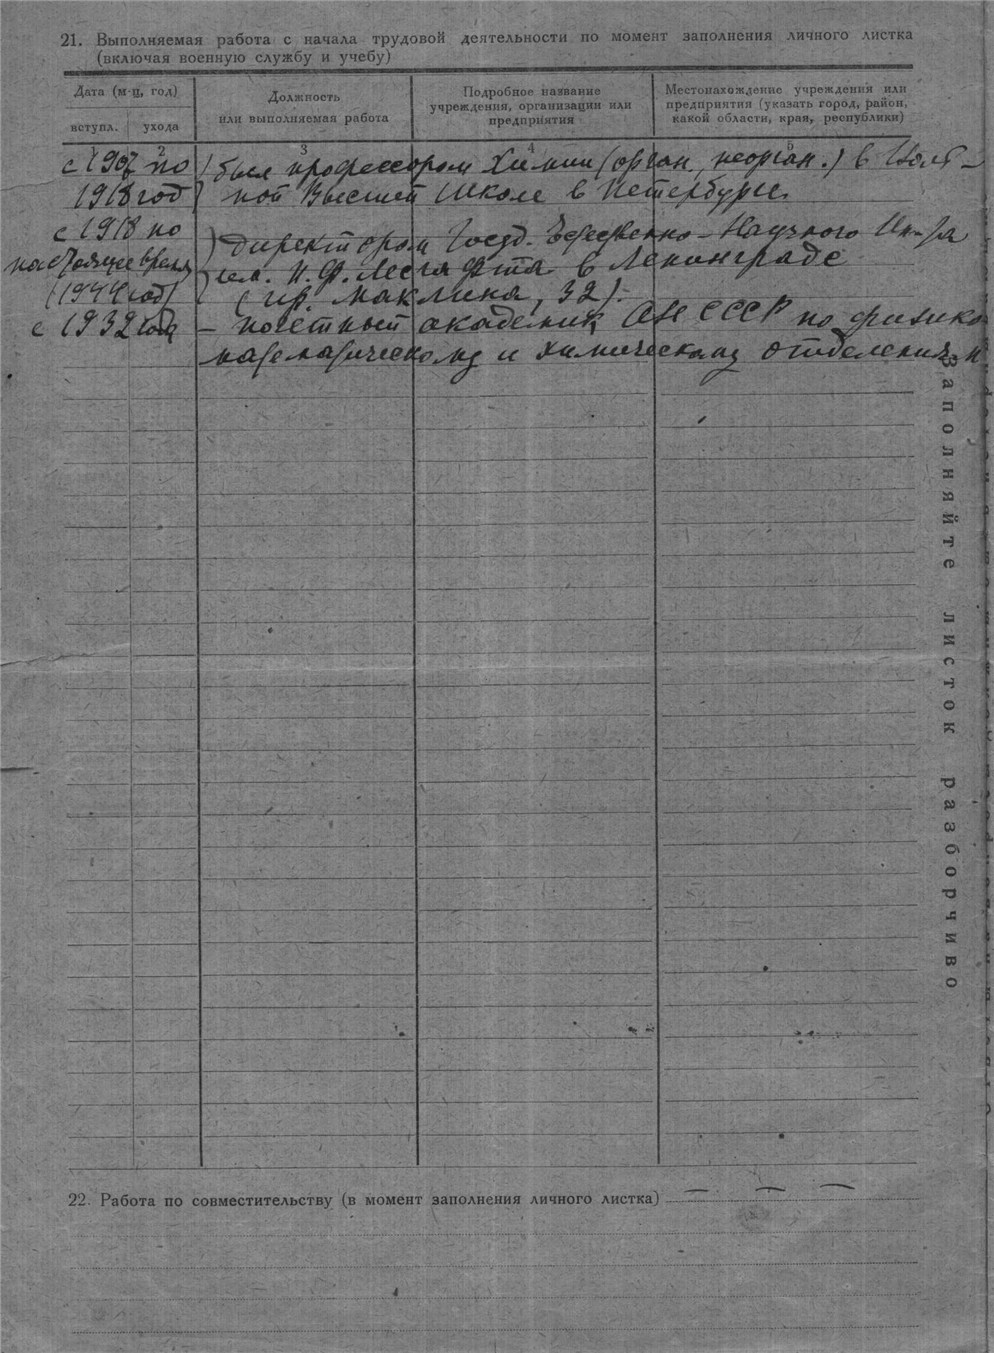 21. Выполняемая работа с начала трудовой деятельности по момент заполнения личного листка
(включая военную службу и учебу)
Дата (м-ц, год)
вступл.
ухода
Должность
или выполняемая работа
Подробное название
учреждения, организации или
предприятия
Местонахождение учреждения или
предприятия (указать город, район,
какой области, края, республики)
1 2 3 4 5
с 1907 по } был профессором Химии (орган., неорган.) в Воль-
1918 год } ной Высшей Школе в Петербурге.
с 1918 по
настоящее время } директором Госуд. Естественно-Научного Ин-та
(1944 год) } им. П. Ф. Лесгафта в Ленинграде
(пр. Маклина, 32).
с 1932 года – почетный академик АН СССР по физико-
математическому и химическому отделениям
22. Работа по совместительству (в момент заполнения личного листка) — — —
Заполняйте листок разборчиво